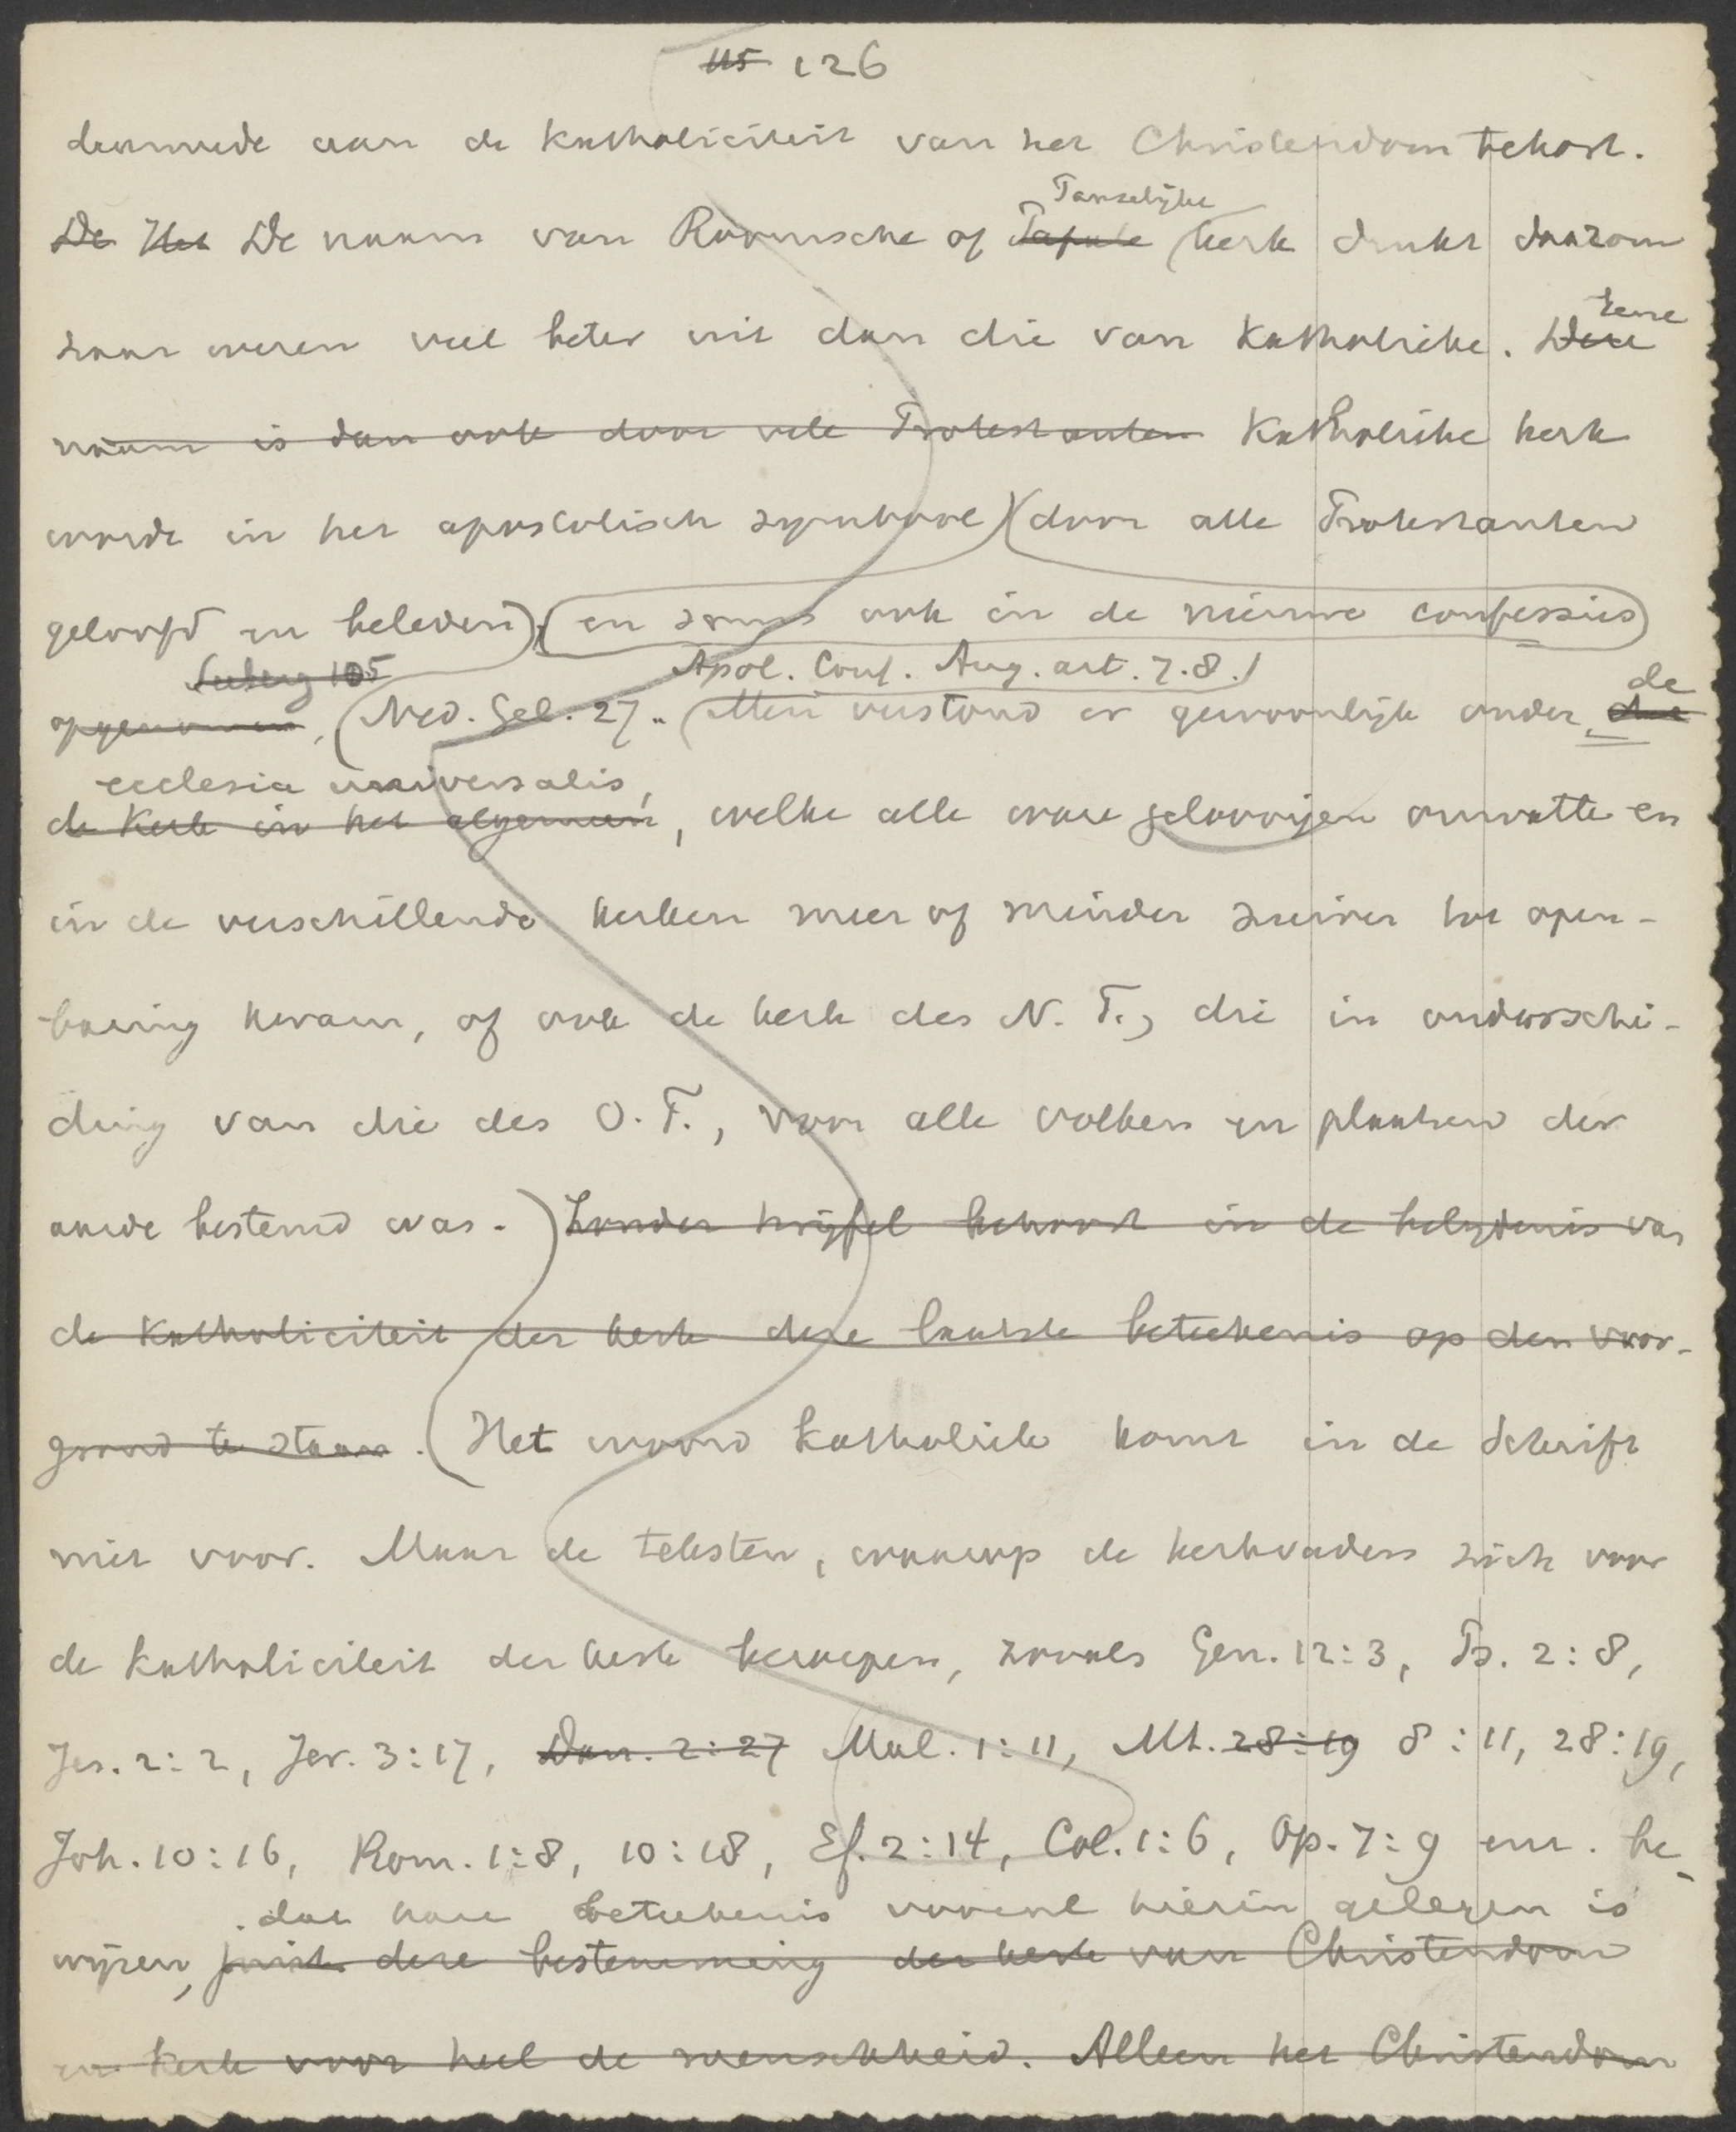 115 126
daarmede aan de Katholiciteit van het Christendom tekort.
Pauselijke
De Het De naam van Roomsche of Papale kerk drukt daarom
haar wezen veel beter uit dan die van Katholieke. Deze
Eene
naam is dan ook door vele Protestanten Katholieke kerk
wordt in het apostolisch symbool door alle Protestanten
geloofd en beleden, en soms ook in de nieuwe confessies
Apol. Conf. Aug. art. 7. 8.
opgenomen, Ned. Gel. 27. Men verstond er gewoonlijk onder de
ecclesia universalis,
de Kerk in het algemeen, welke alle ware geloovigen omvatte en
in de verschillende kerken meer of minder zuiver tot open-
baring kwam, of ook de kerk des N. T., die in onderschei-
ding van die des O. T., voor alle volken en plaatsen der
aarde bestemd was. Zonder twijfel behoort in de belijdenis van
de Katholiciteit der kerk deze laatste beteekenis op den voor-
grond te staan. Het woord Katholiek komt in de Schrift
niet voor. Maar de teksten, waarop de kerkvaders zich voor
de katholiciteit der kerk beroepen, zooals Gen. 12:3, Ps. 2:8,
Jes. 2:2, Jer. 3:17, Dan. 2:27 Mal. 1:11, Mt. 28:19 8:11, 28:19,
Joh. 10:16, Rom. 1:8, 10:18, Ef. 2:14, Col. 1:6, Op. 7:9 enz. be-
dat hare beteekenis vooral hierin gelegen is
wijzen, juist deze bestemming der kerk van Christendom
en Kerk voor heel de menschheid. Alleen het Christendom